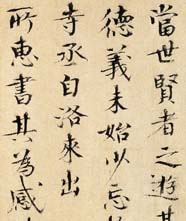 當世賢者之遊其
德義未始少忘
寺丞自洛來出
所惠書其為感